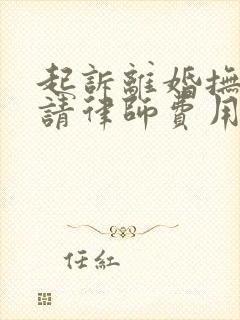 起訴離婚撫
請律師費用
任紅